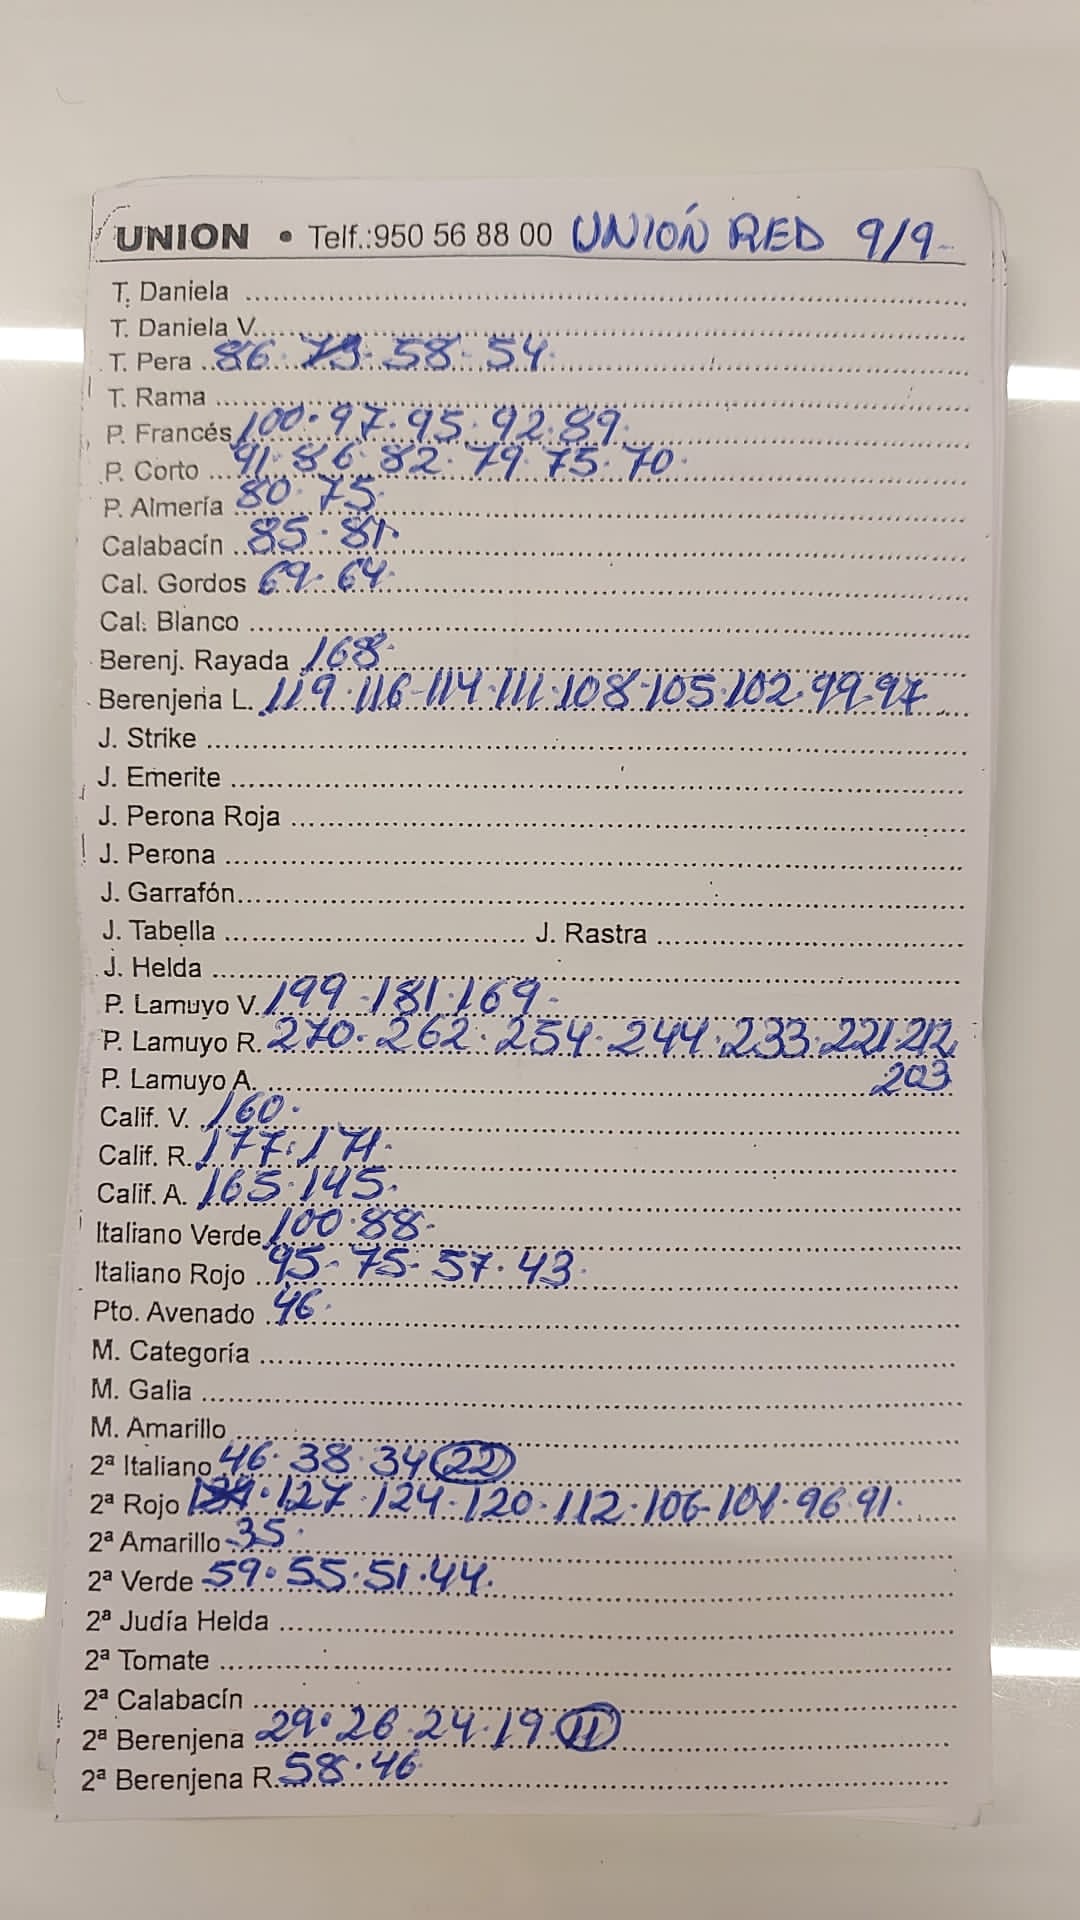 UNION • Telf.:950 56 88 00 UNIÓN RED 9/9-
T. Daniela
T. Daniela V.
T. Pera 86. 73. 58. 54.
T. Rama
P. Francés 100. 97. 95. 92. 89.
P. Corto 91. 86. 82. 79. 75. 70.
P. Almería 80. 75.
Calabacín 85. 81.
Cal. Gordos 69. 64.
Cal. Blanco
Berenj. Rayada 168.
Berenjena L. 119. 116-114. 111. 108-105. 102. 99. 97
J. Strike
J. Emerite
J. Perona Roja
J. Perona
J. Garrafón
J. Tabella J. Rastra
J. Helda
P. Lamuyo V. 199. 181. 169.
P. Lamuyo R. 270. 262. 254. 244. 233. 221. 212.
P. Lamuyo A. 203
Calif. V. 160.
Calif. R. 177. 171.
Calif. A. 165. 145.
Italiano Verde 100. 88.
Italiano Rojo 95. 75. 57. 43.
Pto. Avenado 46.
M. Categoría
M. Galia
M. Amarillo
2ª Italiano 46. 38. 34 22
2ª Rojo 127. 124. 120. 112. 106. 101. 96. 91.
2ª Amarillo 35.
2ª Verde 59. 55. 51. 44.
2ª Judía Helda
2ª Tomate
2ª Calabacín
2ª Berenjena 29. 26. 24. 19. 11
2ª Berenjena R. 58. 46